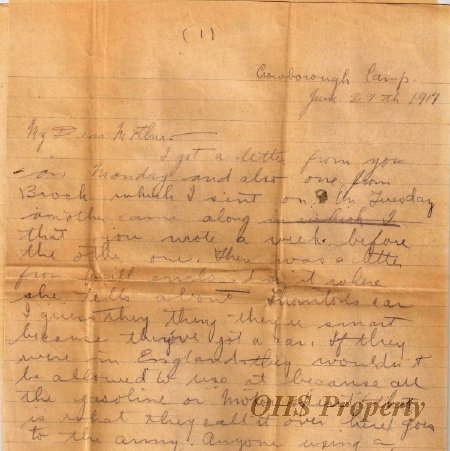 (1)
Crowborough Camp.
June 27th 1917
My Dear Mother
I got a letter from you
on Monday and also one from
Brock which I sint on. On Tuesday
another came along in which I
that you wrote a week before
the other one. There was a letter
from in it where
she tells about car
I guess they thing they're smart
because they've got a car. If they
were in England they wouldn't
be allowed to use it because all
the gasoline or
is what they call it over here goes
to the army. Anyone using a
OHS Property